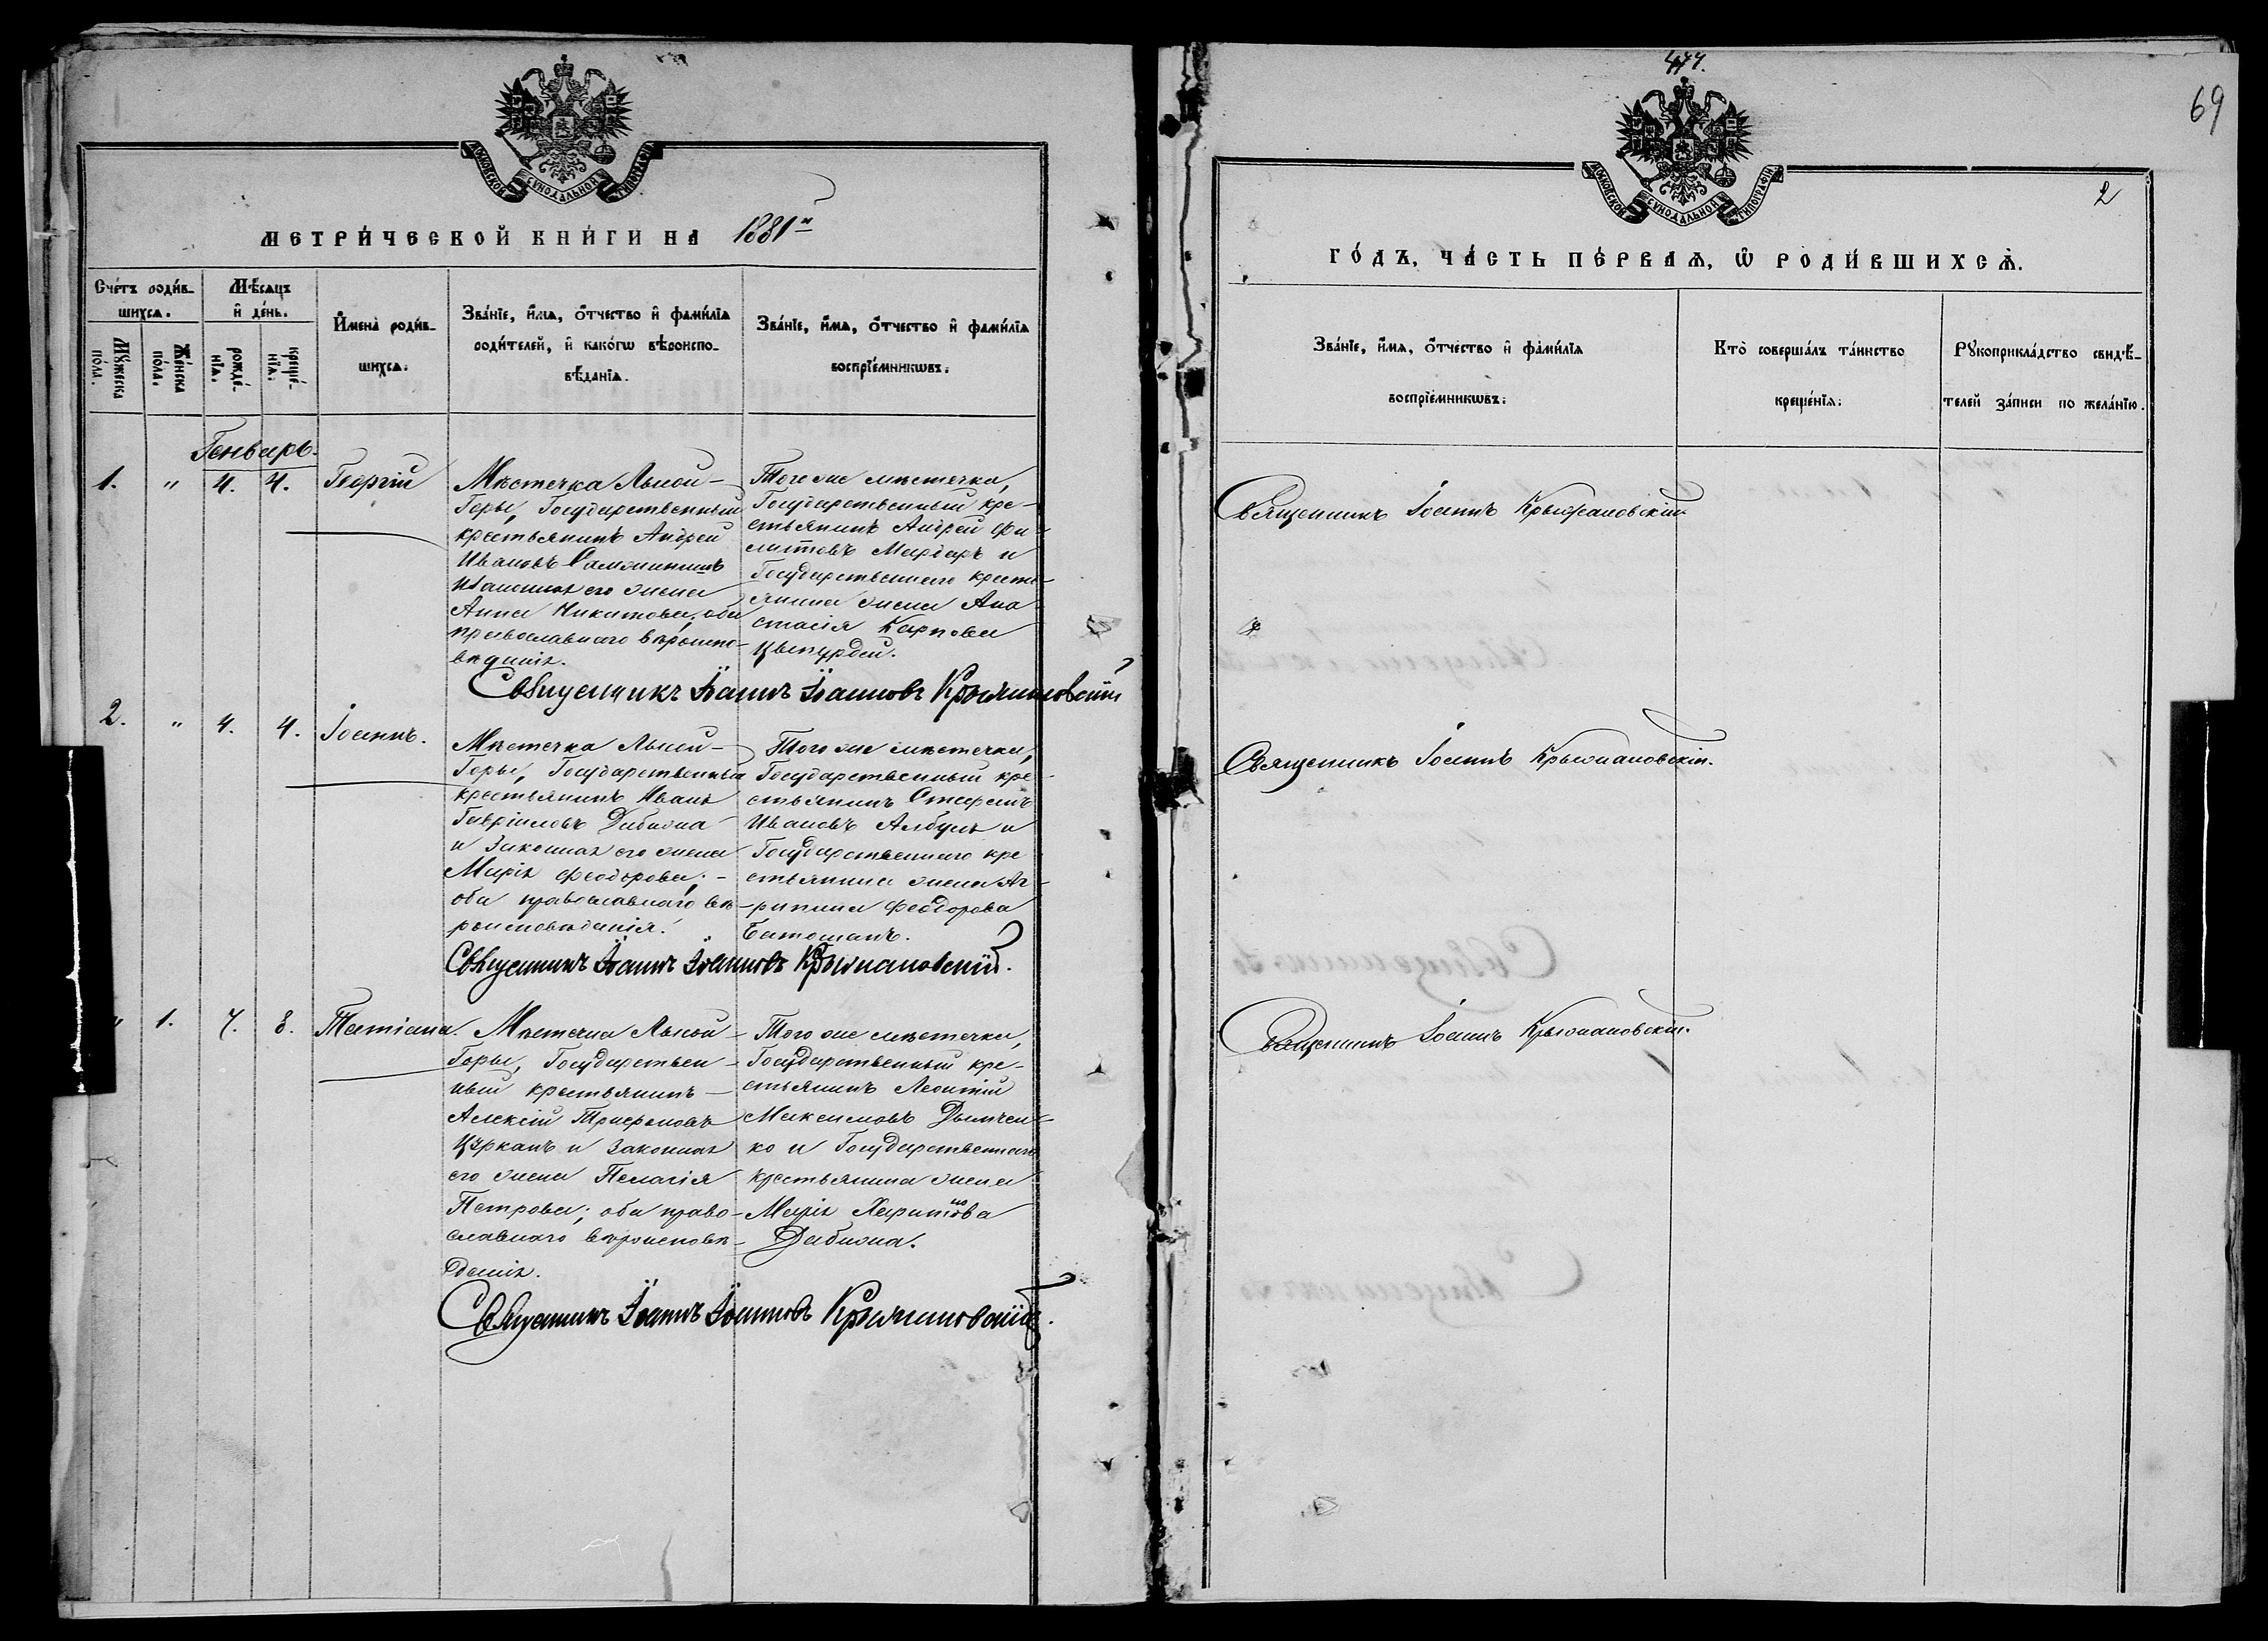 МОСКОВСКОЙ СУНОДАЛЬНОЙ ТИПОГРАФІИ
МЕТРИ́ЧЕСКОЙ КНИ́ГИ НА 1881й
Сче́тъ роди́в-
шихсѧ.
Мѣ́сѧцъ
и҆ де́нь.
Му́жеска
по́ла.
Же́нска
по́ла.
рожде́-
нїѧ.
креще́-
нїѧ.
И҆мена̀ роди́в-
шихсѧ.
Зва́нїе, и҆́мѧ, ѻ҆́тчество и҆ фами́лїѧ
роди́телей, и҆ како́гѡ вѣроиспо-
вѣ́данїѧ.
Зва́нїе, и҆́мѧ, ѻ҆́тчество и҆ фами́лїѧ
воспрїе́мникѡвъ.
Генварь.
1. " 4. 4. Георгій
Мѣстечка Лысой-
Горы, Государственный
крестьянинъ Андрей
Ивановъ
и законная его жена
Анна Никитова, оба
православнаго вѣроиспо-
вѣданія.
Того же мѣстечка,
Государственный кре-
стьянинъ Андрей Фи-
липовъ Мардарь и
Государственнаго кресть-
янина жена Ана-
стасія Карпова
Священникъ Іоаннъ Іоанновъ Крыжановскій
2. " 4. 4. Іоаннъ.
Мѣстечка Лысой-
Горы, Государственный
крестьянинъ Иванъ
Гавріиловъ Дабижа
и законная его жена
Марія Феодорова;-
оба православнаго вѣ-
роисповѣданія.
Того же мѣстечка,
Государственный кре-
стьянинъ Стефанъ
Ивановъ Албулъ и
Государственнаго кре-
стьянина жена Аг-
рипина Феодорова
Ботошанъ.
Священникъ Іоаннъ Іоанновъ Крыжановскій.
" 1. 7. 8. Татіана.
Мѣстечка Лысой-
Горы, Государствен-
ный крестьянинъ-
Алексій Трифоновъ
Цурканъ и законная
его жена Пелагія
Петрова; оба право-
славнаго вѣроисповѣ-
данія.
Того же мѣстечка,
Государственный кре-
стьянинъ Леонтій
Максимовъ Дымчен-
ко и Государственнаго
крестьянина жена
Марія Харитонова
Дабижа.
Священникъ Іоаннъ Іоанновъ Крыжановскій.
477.
69
2
МОСКОВСКОЙ СУНОДАЛЬНОЙ ТИПОГРАФІИ
ГО́ДЪ, ЧА́СТЬ ПЕ́РВАѦ, Ѡ҆ РОДИ́ВШИХСѦ.
Зва́нїе, и҆́мѧ, ѻ҆́тчество и҆ фами́лїѧ
воспрїе́мникѡвъ.
Кто̀ соверша́лъ та́инство
креще́нїѧ.
Рꙋкоприкла́дство свидѣ́-
телей за́писи по жела́нїю.
Священникъ Іоаннъ Крыжановскій
Священникъ Іоаннъ Крыжановскій.
Священникъ Іоаннъ Крыжановскій.